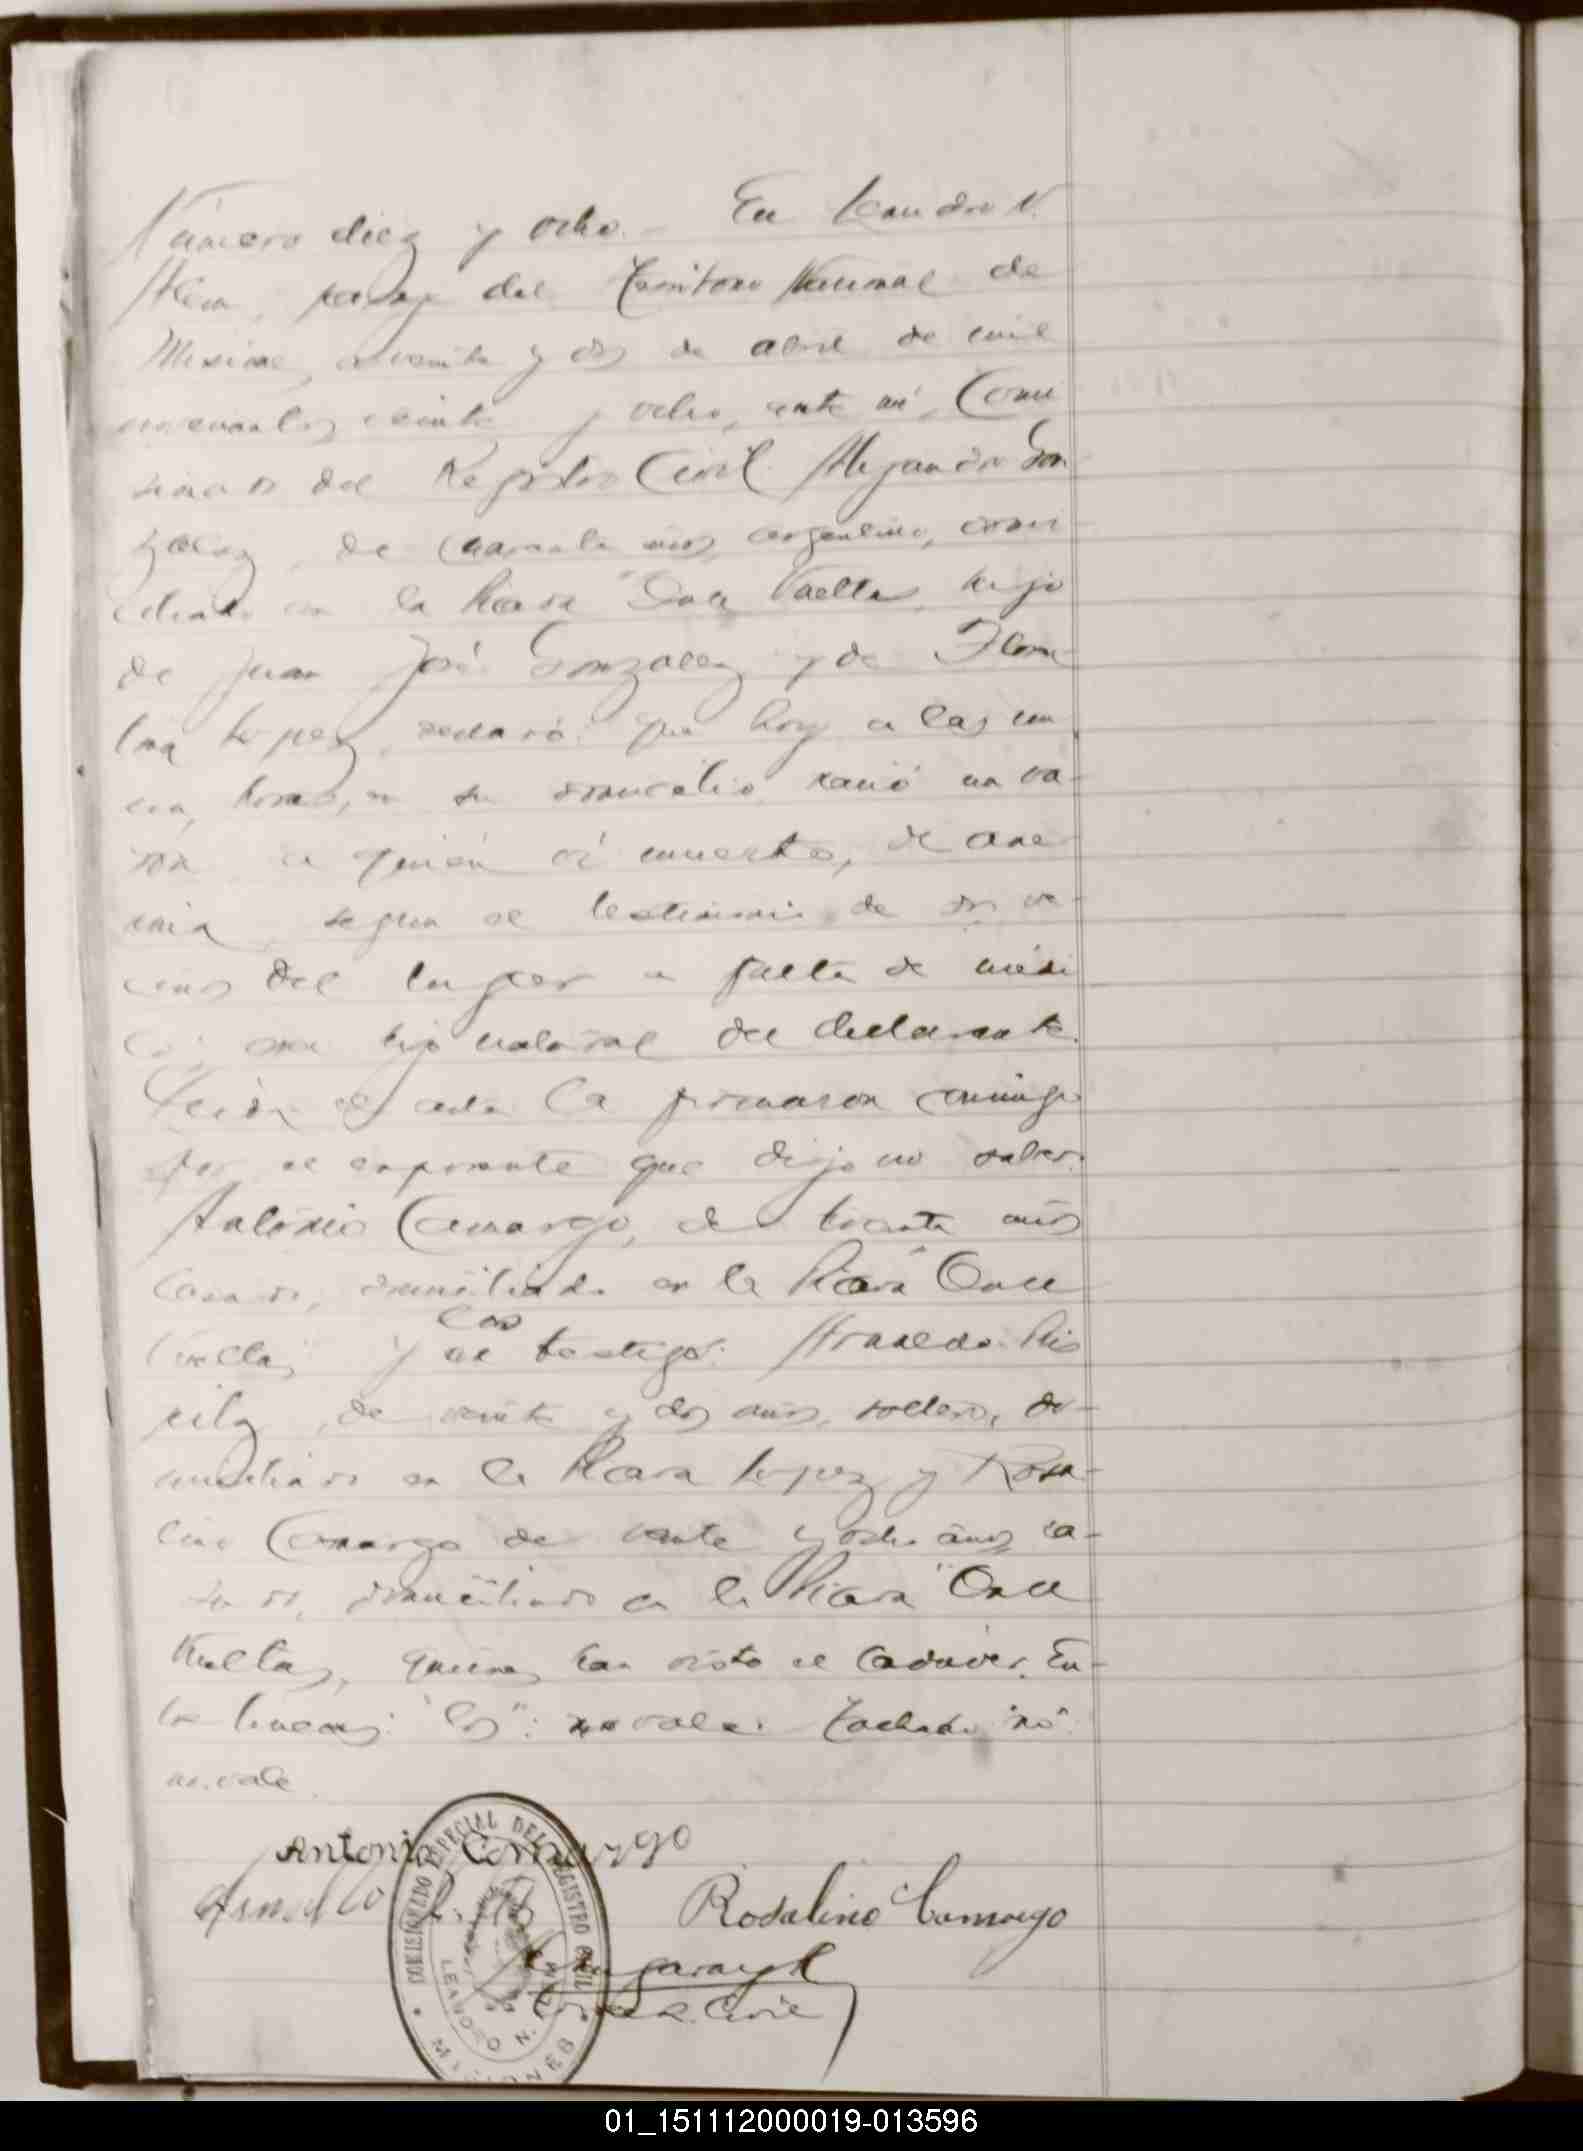 Número diez y ocho.- En Leandro N.
Alem, paraje del Territorio Nacional de
Misiones, a veinte y dos de abril de mil
novecientos veinte y ocho, ante mí, Comi
sionado del Registro Civil Alejandro Gon
zalez, de cuarenta años, argentino, domi
ciliado en la Picada "Once Vueltas", hijo
de Juan José Gonzalez y de
Lopez, declaró: que hoy a las
horas, en su domicilio, nació un va-
ron a quien ví muerto, de ane
mia, segun el testimonio de dos ve-
cinos del lugar a falta de médi
co; era hijo natural del declarante.
Leida el acta la firmaron conmigo
por el exponente que dijo no saber:
Antonio Camargo, de treinta años
casado, domiciliado en la Picada "Once
los
Vueltas" y el testigo: Arnaldo
de veinte y dos años, soltero, do-
miciliado en la Picada Lopez y Rosa-
lino Camargo de veinte y ocho años, ca-
sado, domiciliado en la Picada "Once
Vueltas", quienes han visto el cadáver. En-
tre lineas: "los": vale. Tachado "no":
no vale.
Antonio Camargo
Arnaldo
Rosalino Camargo
COMISIONADO ESPECIAL DEL REGISTRO CIVIL
LEANDRO N. ALEM
MISIONES
01_151112000019-013596